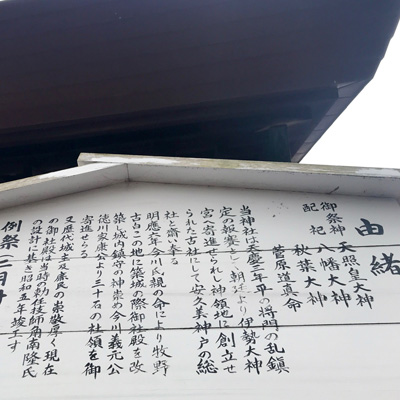 由緒
御祭神 天照皇大神
配祀 八幡大神
秋葉大神
菅原道真命
当神社は天慶三年平の将門の乱鎮
定の報賽として朝廷より伊勢大神
宮へ寄進せられし神領地に創立せ
られた古社にして安久美神戸の総
社と斎い奉る
明應六年今川氏親の命により牧野
古白この地に築城の際御社殿を改
築し城内鎮守の神崇め今川義元公
徳川家康公より三十石の社領を御
寄進らる
又歴代城主及庶民の崇敬厚く現在
の御社殿は当時の勅任技師角南隆氏
の設計に基き昭和五年竣工す
例祭 二月十